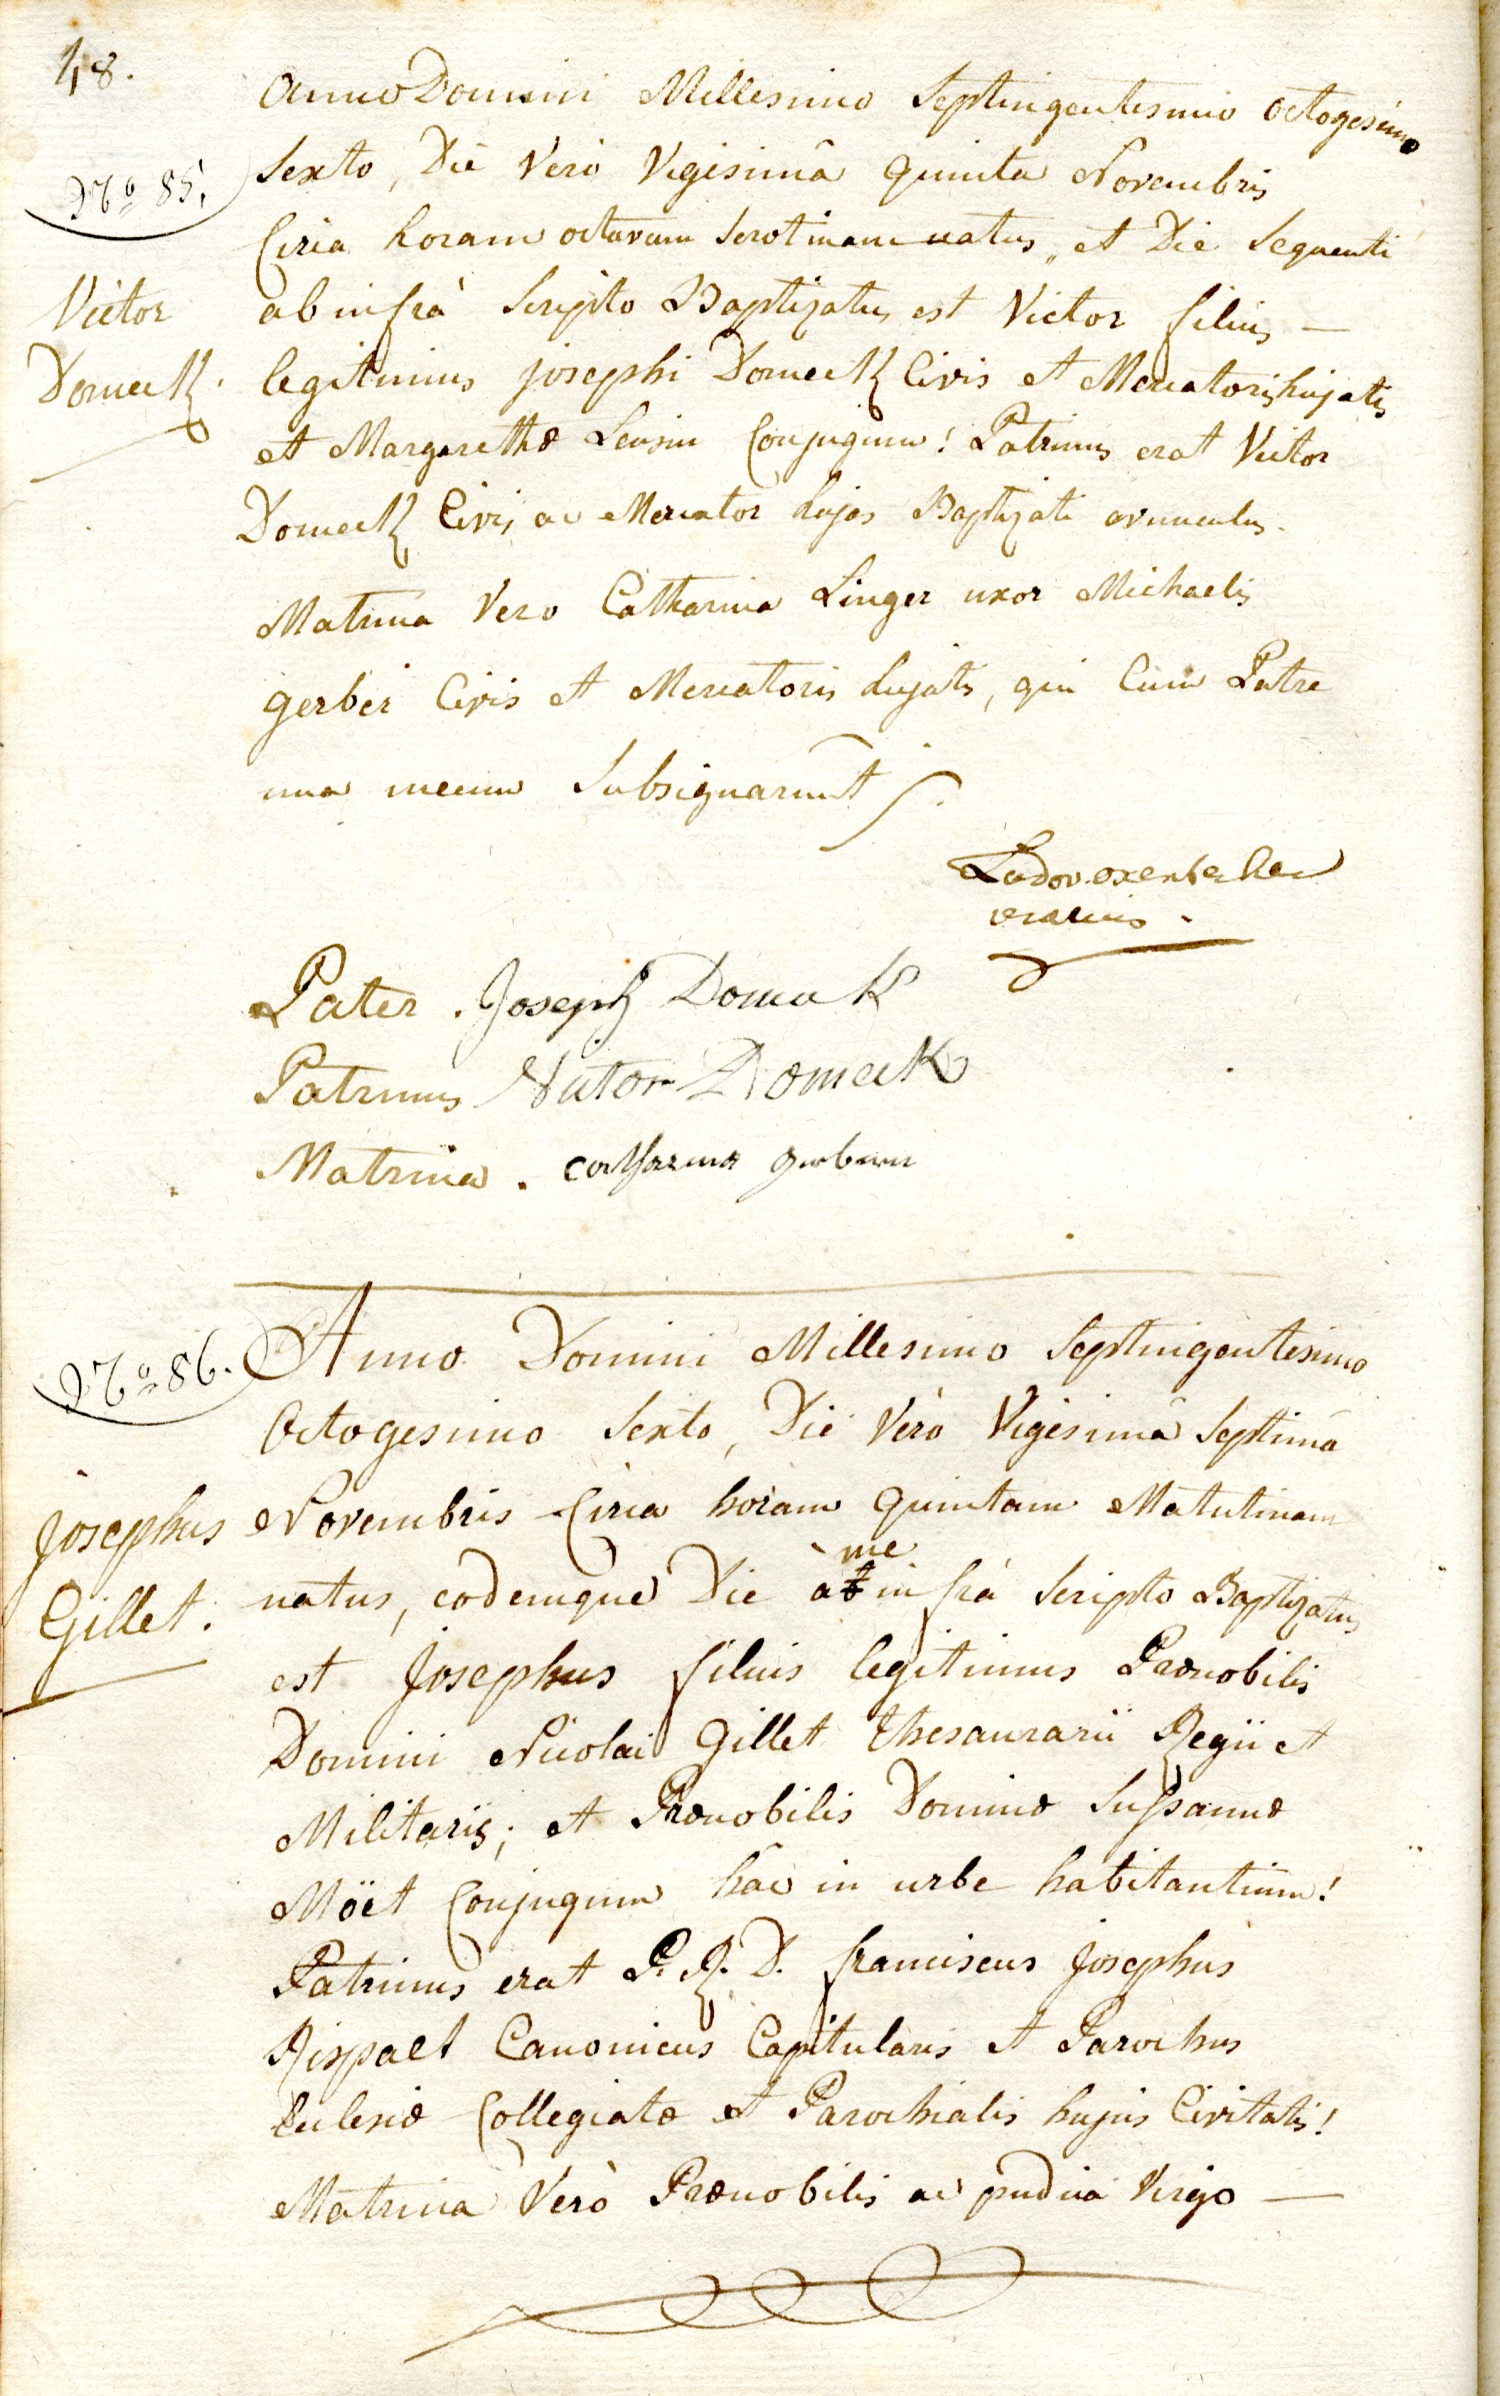 48.
Anno Domini Millesimo Septingentesimo octogesimo
Nº 85.
Sexto, Die Verò Vigesimâ quinta Novembris
Circa horam octavam Serotinam natus, et Die Sequenti
Victor
ab infrà Scripto Baptizatus est Victor filius —
Domeck.
legitimus josephi Domeck Civis et Mercatoris hujatis
et Margarethæ Conjugum! Patrinus erat Victor
Domeck Civis ac Mercator hujas Baptizati avunculus.
Matrina Vero Catharina Linger uxor Michaelis
gerber Civis et Mercatoris hujatis, qui Cum Patre
una mecum Subsignarunt
Ludov.
vicarius.
Pater. Joseph Domeck
Patrinus Victor Domeck
Matrina. catharina
Nº 86.
Anno Domini Millesimo Septingentesimo
Octogesimo Sexto, Die Verò Vigesimâ Septimâ
Josephus
Novembris Circa horam quintam Matutinam
me
natus, eodemque Die à infrà Scripto Baptizatus
Gillet.
est Josephus filius legitimus Prænobilis
Domini Nicolai Gillet Thesaurarii Regii et
Militaris; et Prænobilis Dominæ Sussannæ
Möet Conjugum hâc in urbe habitantium!
Patrinus erat P. R. D. franciscus Josephus
Rispaet Canonicus Capitularis et Parochus
Eclesiæ Collegiatæ et Parochialis hujus Civitatis!
Matrina Verò Prænobilis ac pudica Virgo —